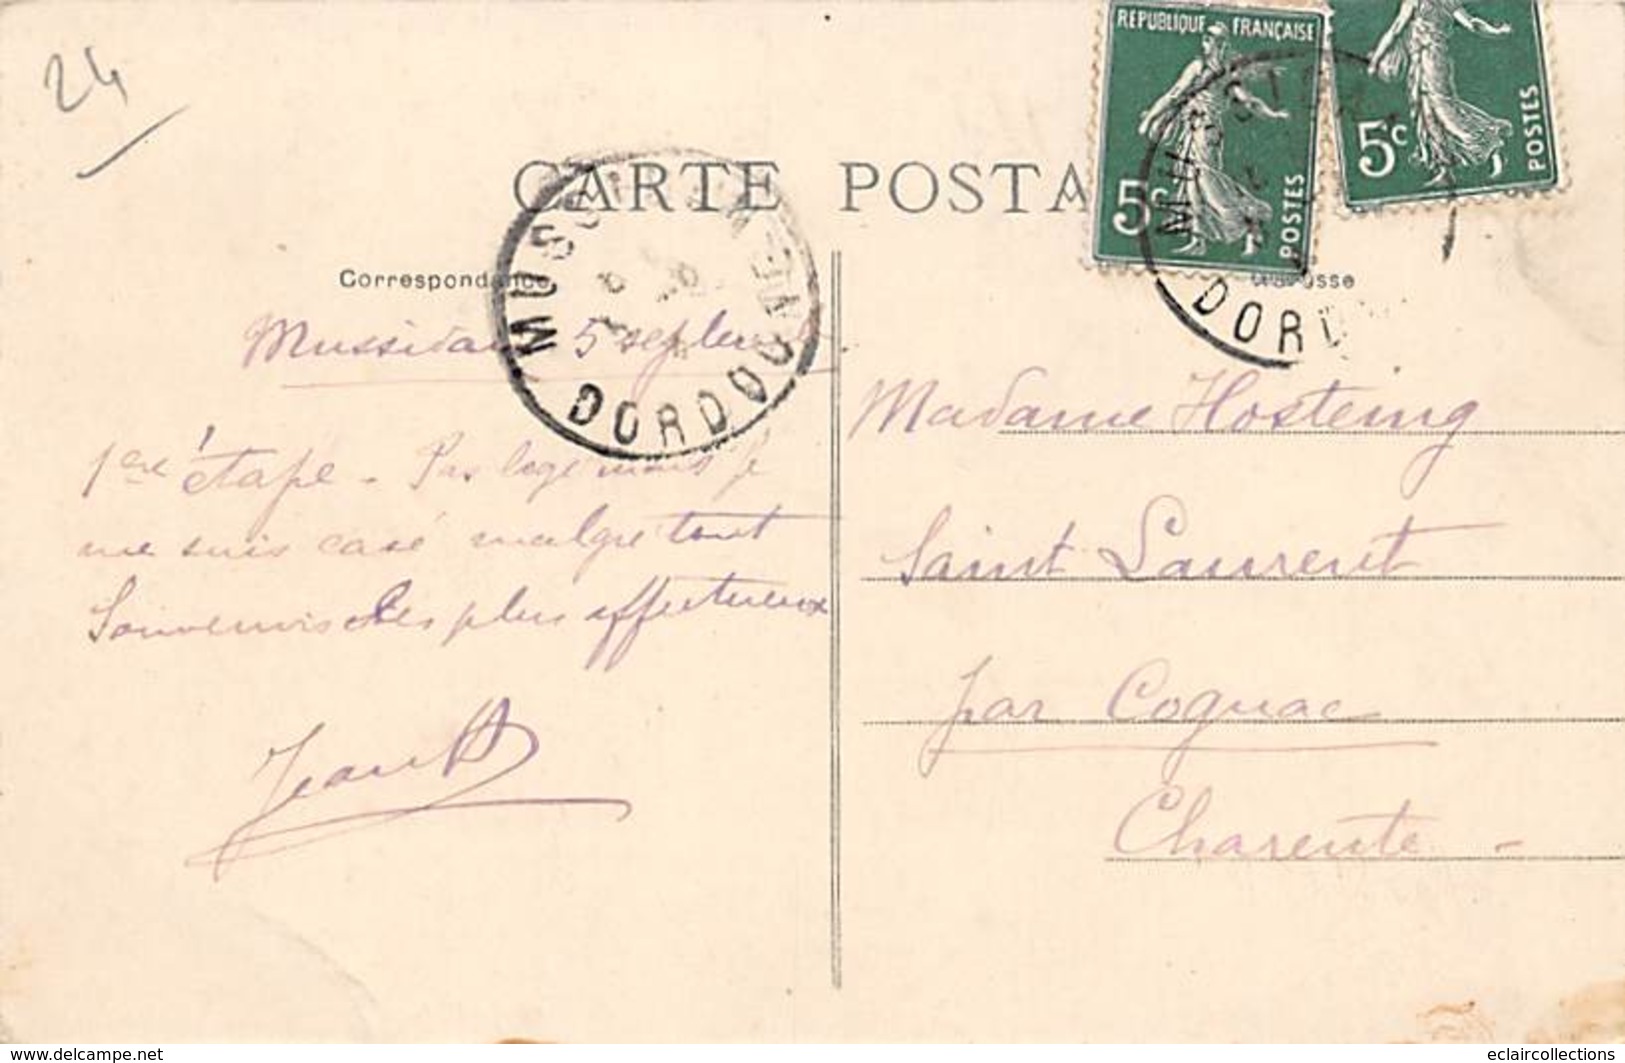 24
CARTE POSTA
RÉPUBLIQUE FRANÇAISE
5c
POSTES
5c
POSTES
MUSSIDAN
DORD
MUSSIDAN
DORDOGNE
Correspondance
Mussidan 5 septembre
1ere étape - Pas logé mais je
me suis casé malgré tout
Souvenirs les plus affectueux
Jean
Madame Hosteing
Saint Laurent
par Cognac
Charente -
www.delcampe.net
eclaircollections